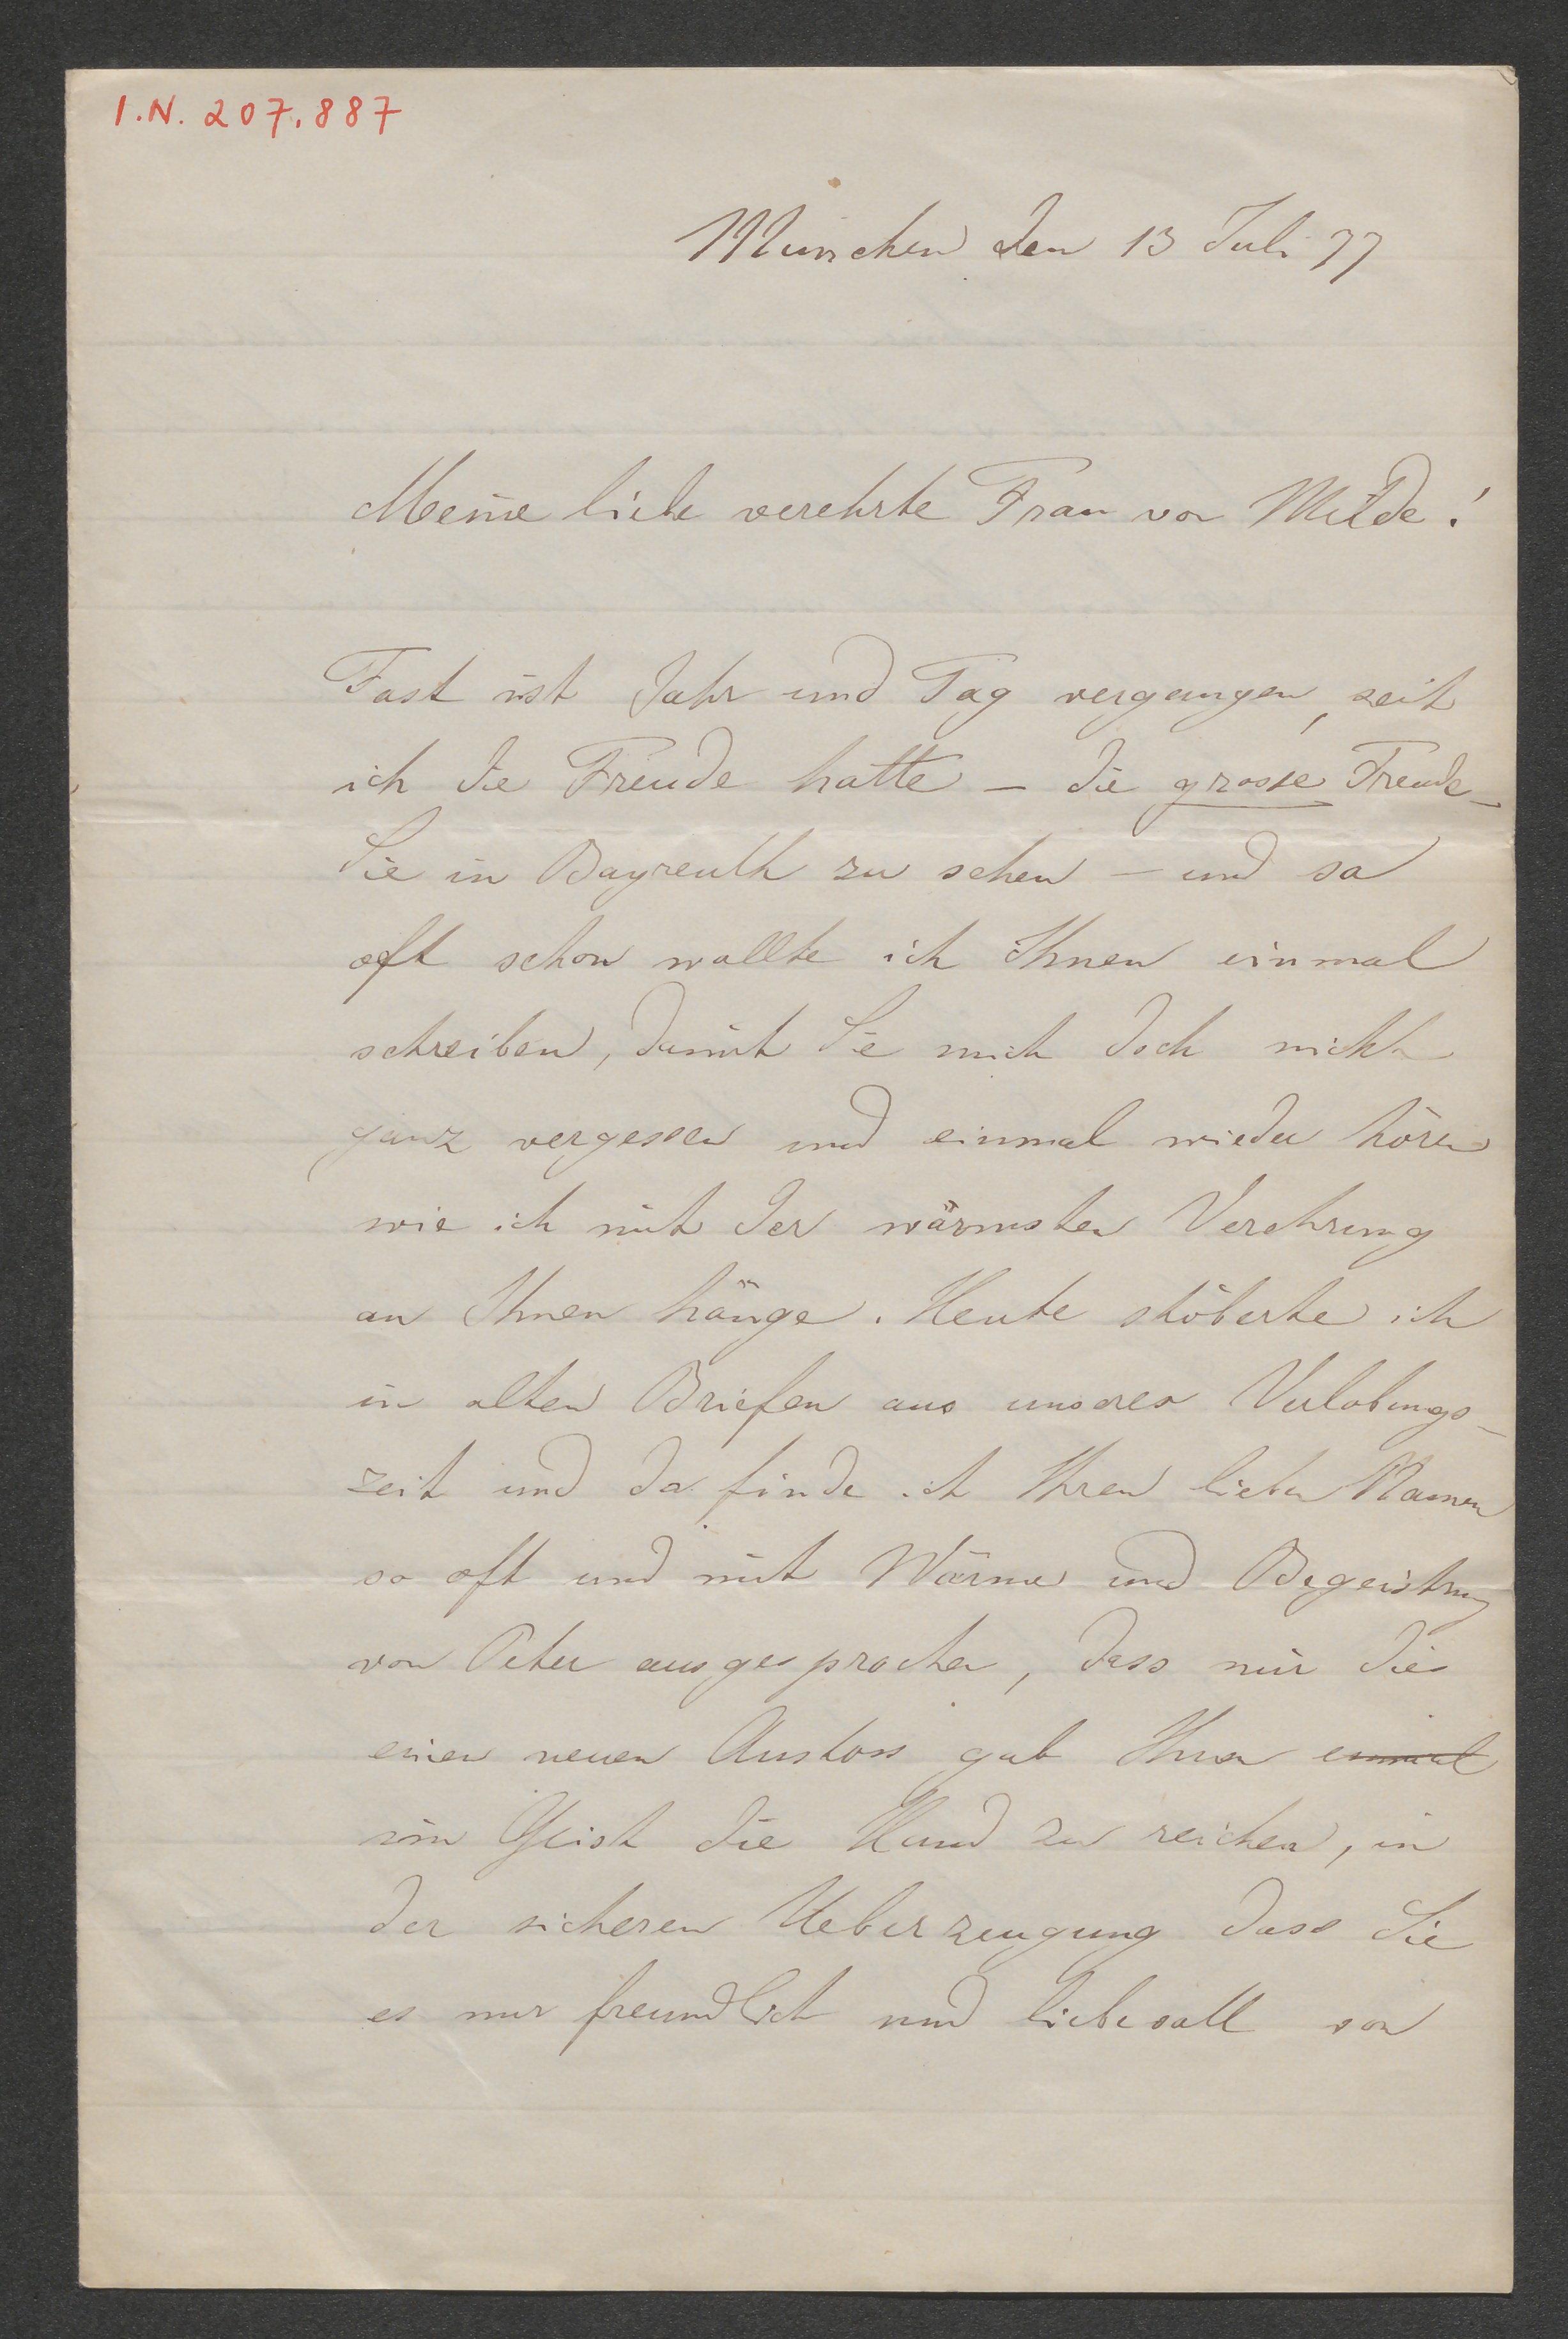 I.N. 207.887
München den 13 Juli 77
Meine liebe verehrte Frau von Milde!
Fast ist Jahr und Tag vergangen, seit
ich die Freude hatte – die grosse Freude –
Sie in Bayreuth zu sehen – und so
oft schon wollte ich Ihnen einmal
schreiben, damit Sie mich doch nicht
ganz vergessen und einmal wieder hören
wie ich mit der wärmsten Verehrung
an Ihnen hänge. Heute stöberte ich
in alten Briefen aus unserer Verlobungs-
zeit und da finde ich Ihren lieben Namen
so oft und mit Wärme und Begeistrung
von Peter ausgesprochen, dass mir dies
einen neuen Anstoss gab Ihnen einmal
im Geist die Hand zu reichen, in
der sicheren Ueberzeugung dass Sie
es nur freundlich und liebevoll von